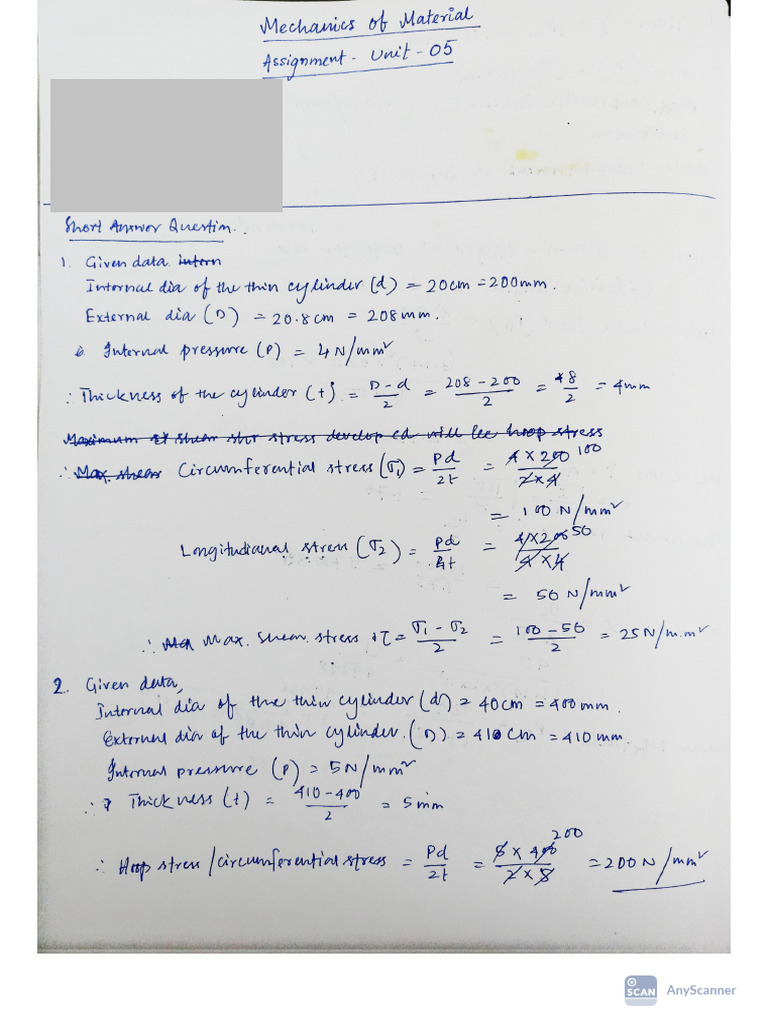 Mechanics of Material
Assignment - Unit - 05
Short Answer Question.
1. Given data. intern
Internal dia of the thin cylinder (d) = 20cm = 200mm.
External dia (D) = 20.8cm = 208mm.
Internal pressure (P) = 4N/mm²
∴ Thickness of the cylinder (t) = D-d/2 = 208-200/2 = 8/2 = 4mm
∴ Max. shear Circumferential stress (σ1) = Pd/2t = 4×200/2×4 100
= 100 N/mm²
Longitudianal stress (σ2) = Pd/4t = 4×200/4×4 50
= 50 N/mm²
∴ Max. shear stress τ = σ1-σ2/2 = 100-50/2 = 25N/m.m²
2. Given data,
Internal dia of the thin cylinder (d) = 40cm = 400mm.
External dia of the thin cylinder. (D) = 410 cm = 410 mm.
Internal pressure (P) = 5N/mm²
∴ Thickness (t) = 410-400/2 = 5mm
∴ Hoop stress/circumferential stress = Pd/2t = 5×400/2×5 200 = 200N/mm²
SCAN AnyScanner